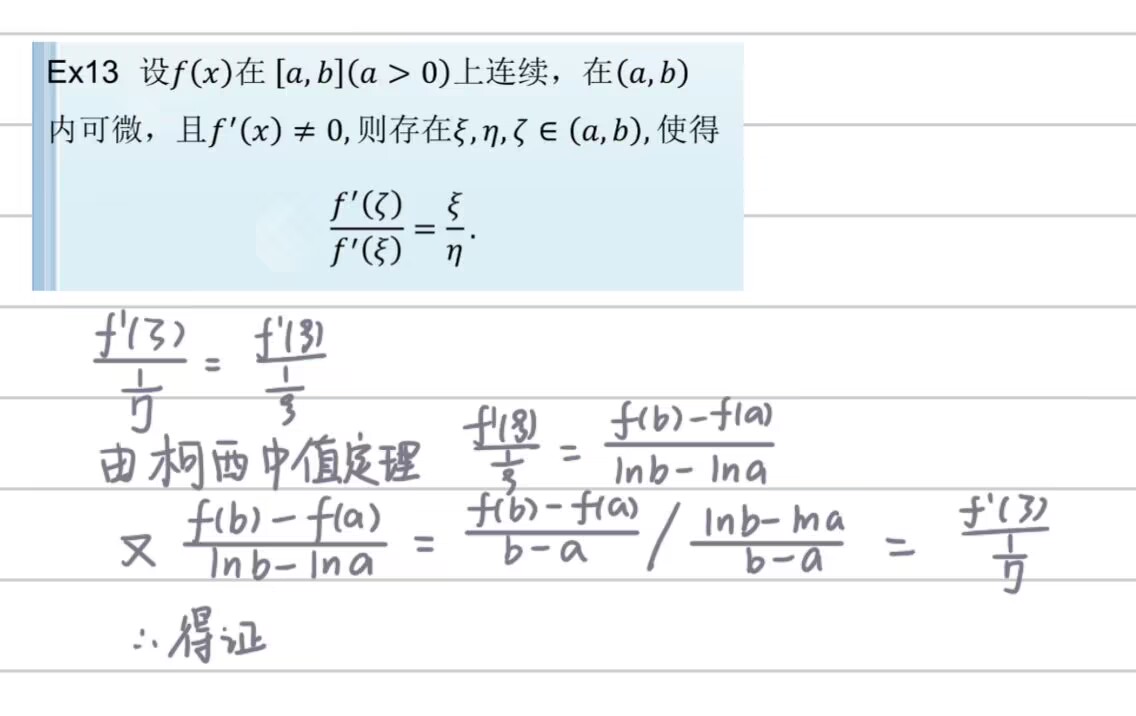 Ex13 设f(x)在 [a, b](a > 0)上连续，在(a, b)
内可微，且f′(x) ≠ 0, 则存在ξ, η, ζ ∈ (a, b), 使得
f′(ζ)/f′(ξ) = ξ/η.
f'(ζ)/(1/η) = f'(ξ)/(1/ξ)
由柯西中值定理 f'(ξ)/(1/ξ) = (f(b)-f(a))/(lnb-lna)
又 (f(b)-f(a))/(lnb-lna) = (f(b)-f(a))/(b-a) / (lnb-lna)/(b-a) = f'(ζ)/(1/η)
∴得证